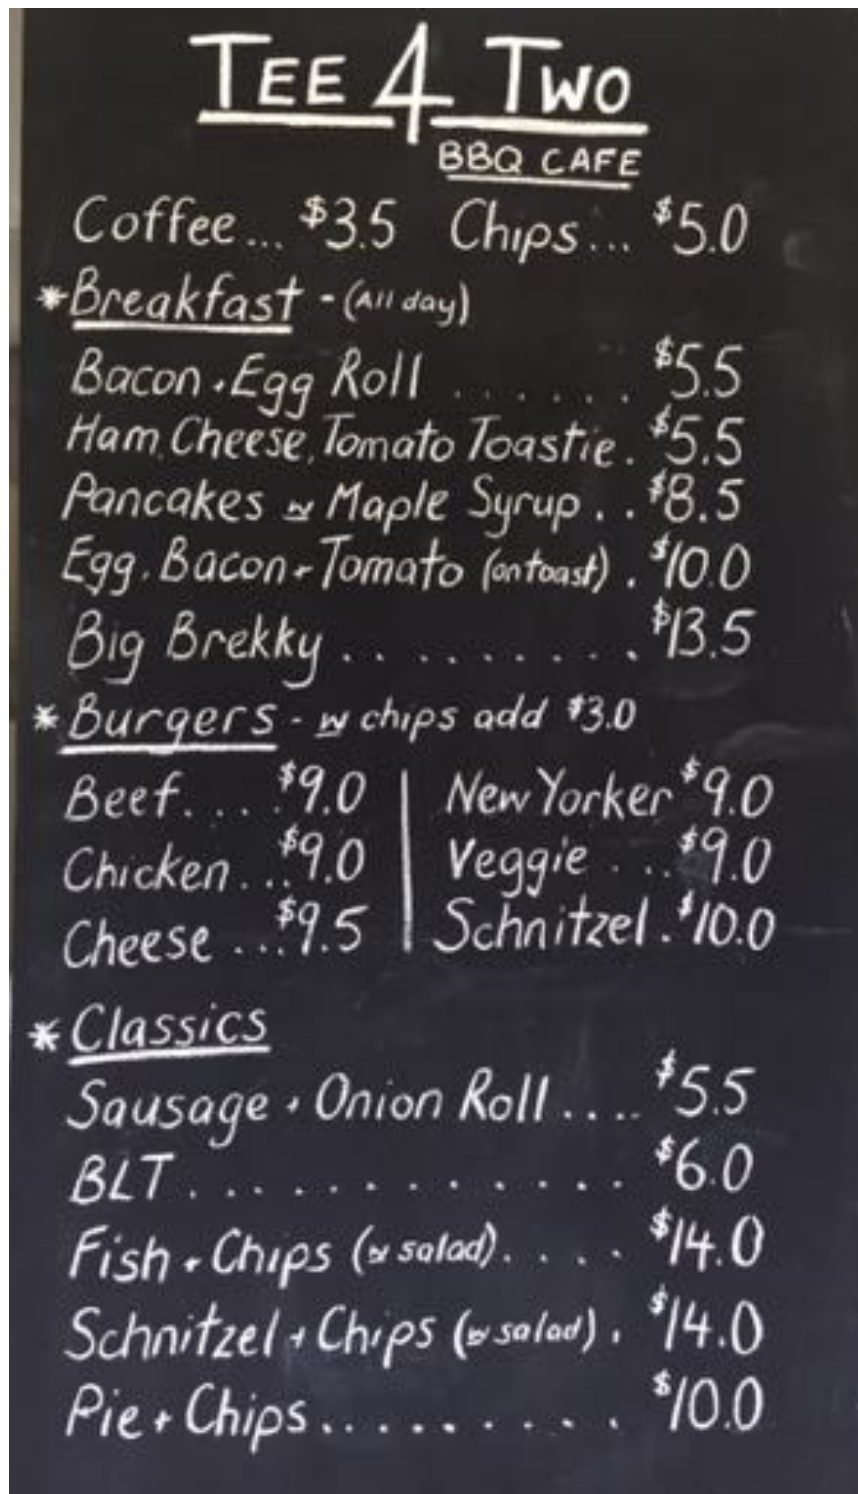 TEE 4 TWO
BBQ CAFE
Coffee... $3.5 Chips... $5.0
*Breakfast - (All day)
Bacon + Egg Roll ...... $5.5
Ham, Cheese, Tomato Toastie. $5.5
Pancakes w Maple Syrup .. $8.5
Egg, Bacon + Tomato (on toast) . $10.0
Big Brekky ......... $13.5
*Burgers - w chips add $3.0
Beef.... $9.0 | New Yorker $9.0
Chicken... $9.0 | Veggie .... $9.0
Cheese ... $9.5 | Schnitzel . $10.0
*Classics
Sausage + Onion Roll .... $5.5
BLT ............ $6.0
Fish + Chips (w salad).... $14.0
Schnitzel + Chips (w salad) . $14.0
Pie + Chips......... $10.0